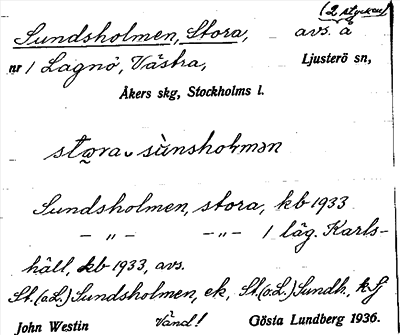 (2 stycken)
Sundsholmen, Stora, avs. å
nr 1 Lagnö, Västra, Ljusterö sn,
Åkers skg, Stockholms l.
stora sùnsholmən
Sundsholmen, stora, kb 1933
— „ — — „ — 1 läg. Karls-
häll, kb 1933, avs.
St. (o. L.) Sundsholmen, ek, St. (o. L.) Sundh, kf
John Westin Vänd! Gösta Lundberg 1936.